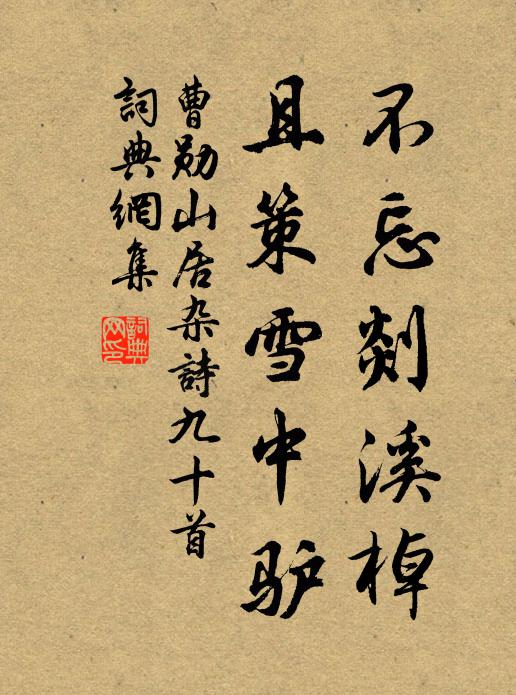 不忘剡溪棹
且策雪中驴
曹勋山居杂詩九十首
詞典網集
詞典网印